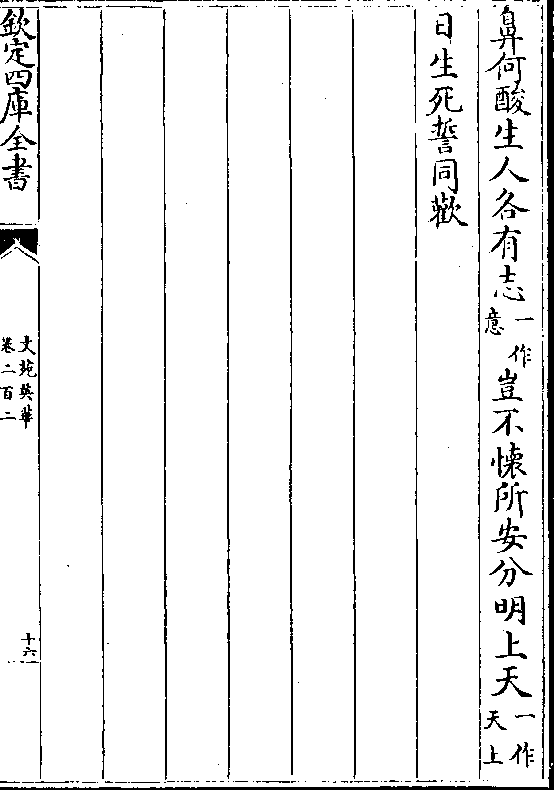 鼻何酸生人各有志一作意豈不懐所安分明上天一作天上
日生死誓同歡
欽定四庫全書
文苑英華
卷二百二
十六